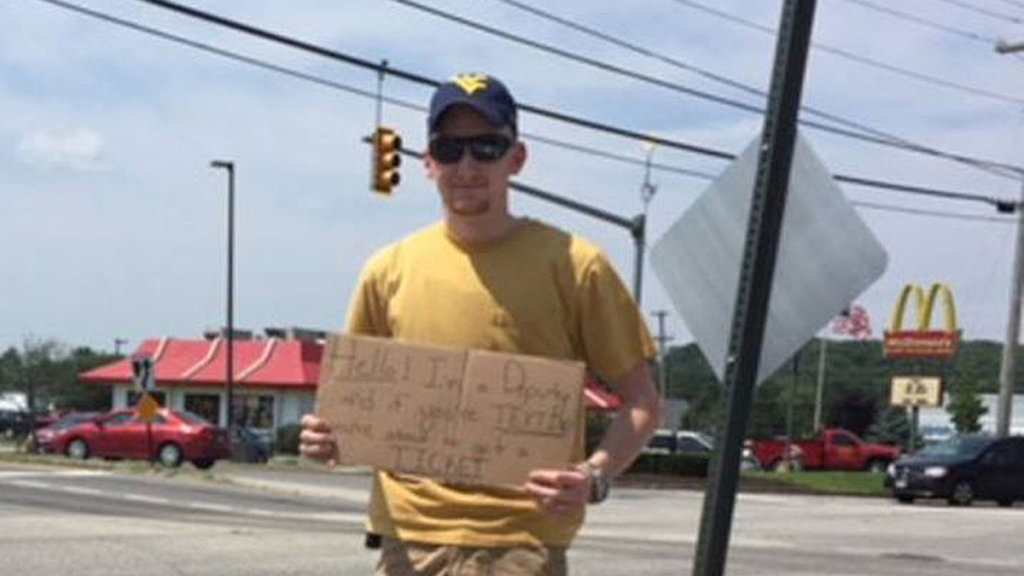 Hello! I'm a Deputy
and if you're TEXTING
you're about to get a
TICKET
McDonald's